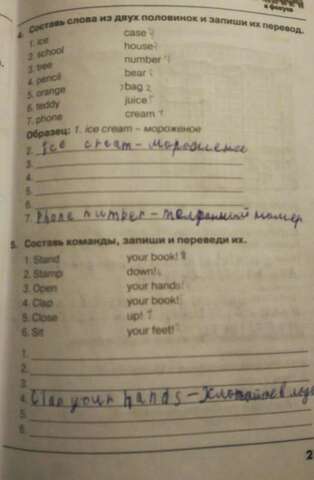 в фокусе
4. Составь слова из двух половинок и запиши их перевод.
1. ice case
2. school house
3. tree number
4. pencil bear
5. orange bag
6. teddy juice
7. phone cream
Образец: 1. ice cream – мороженое
2. Ice cream – мороженое
3.
4.
5.
6.
7. Phone number – номер
5. Составь команды, запиши и переведи их.
1. Stand your book!
2. Stamp down!
3. Open your hands!
4. Clap your book!
5. Close up!
6. Sit your feet!
1.
2.
3.
4. Clap your hands –
5.
6.
2